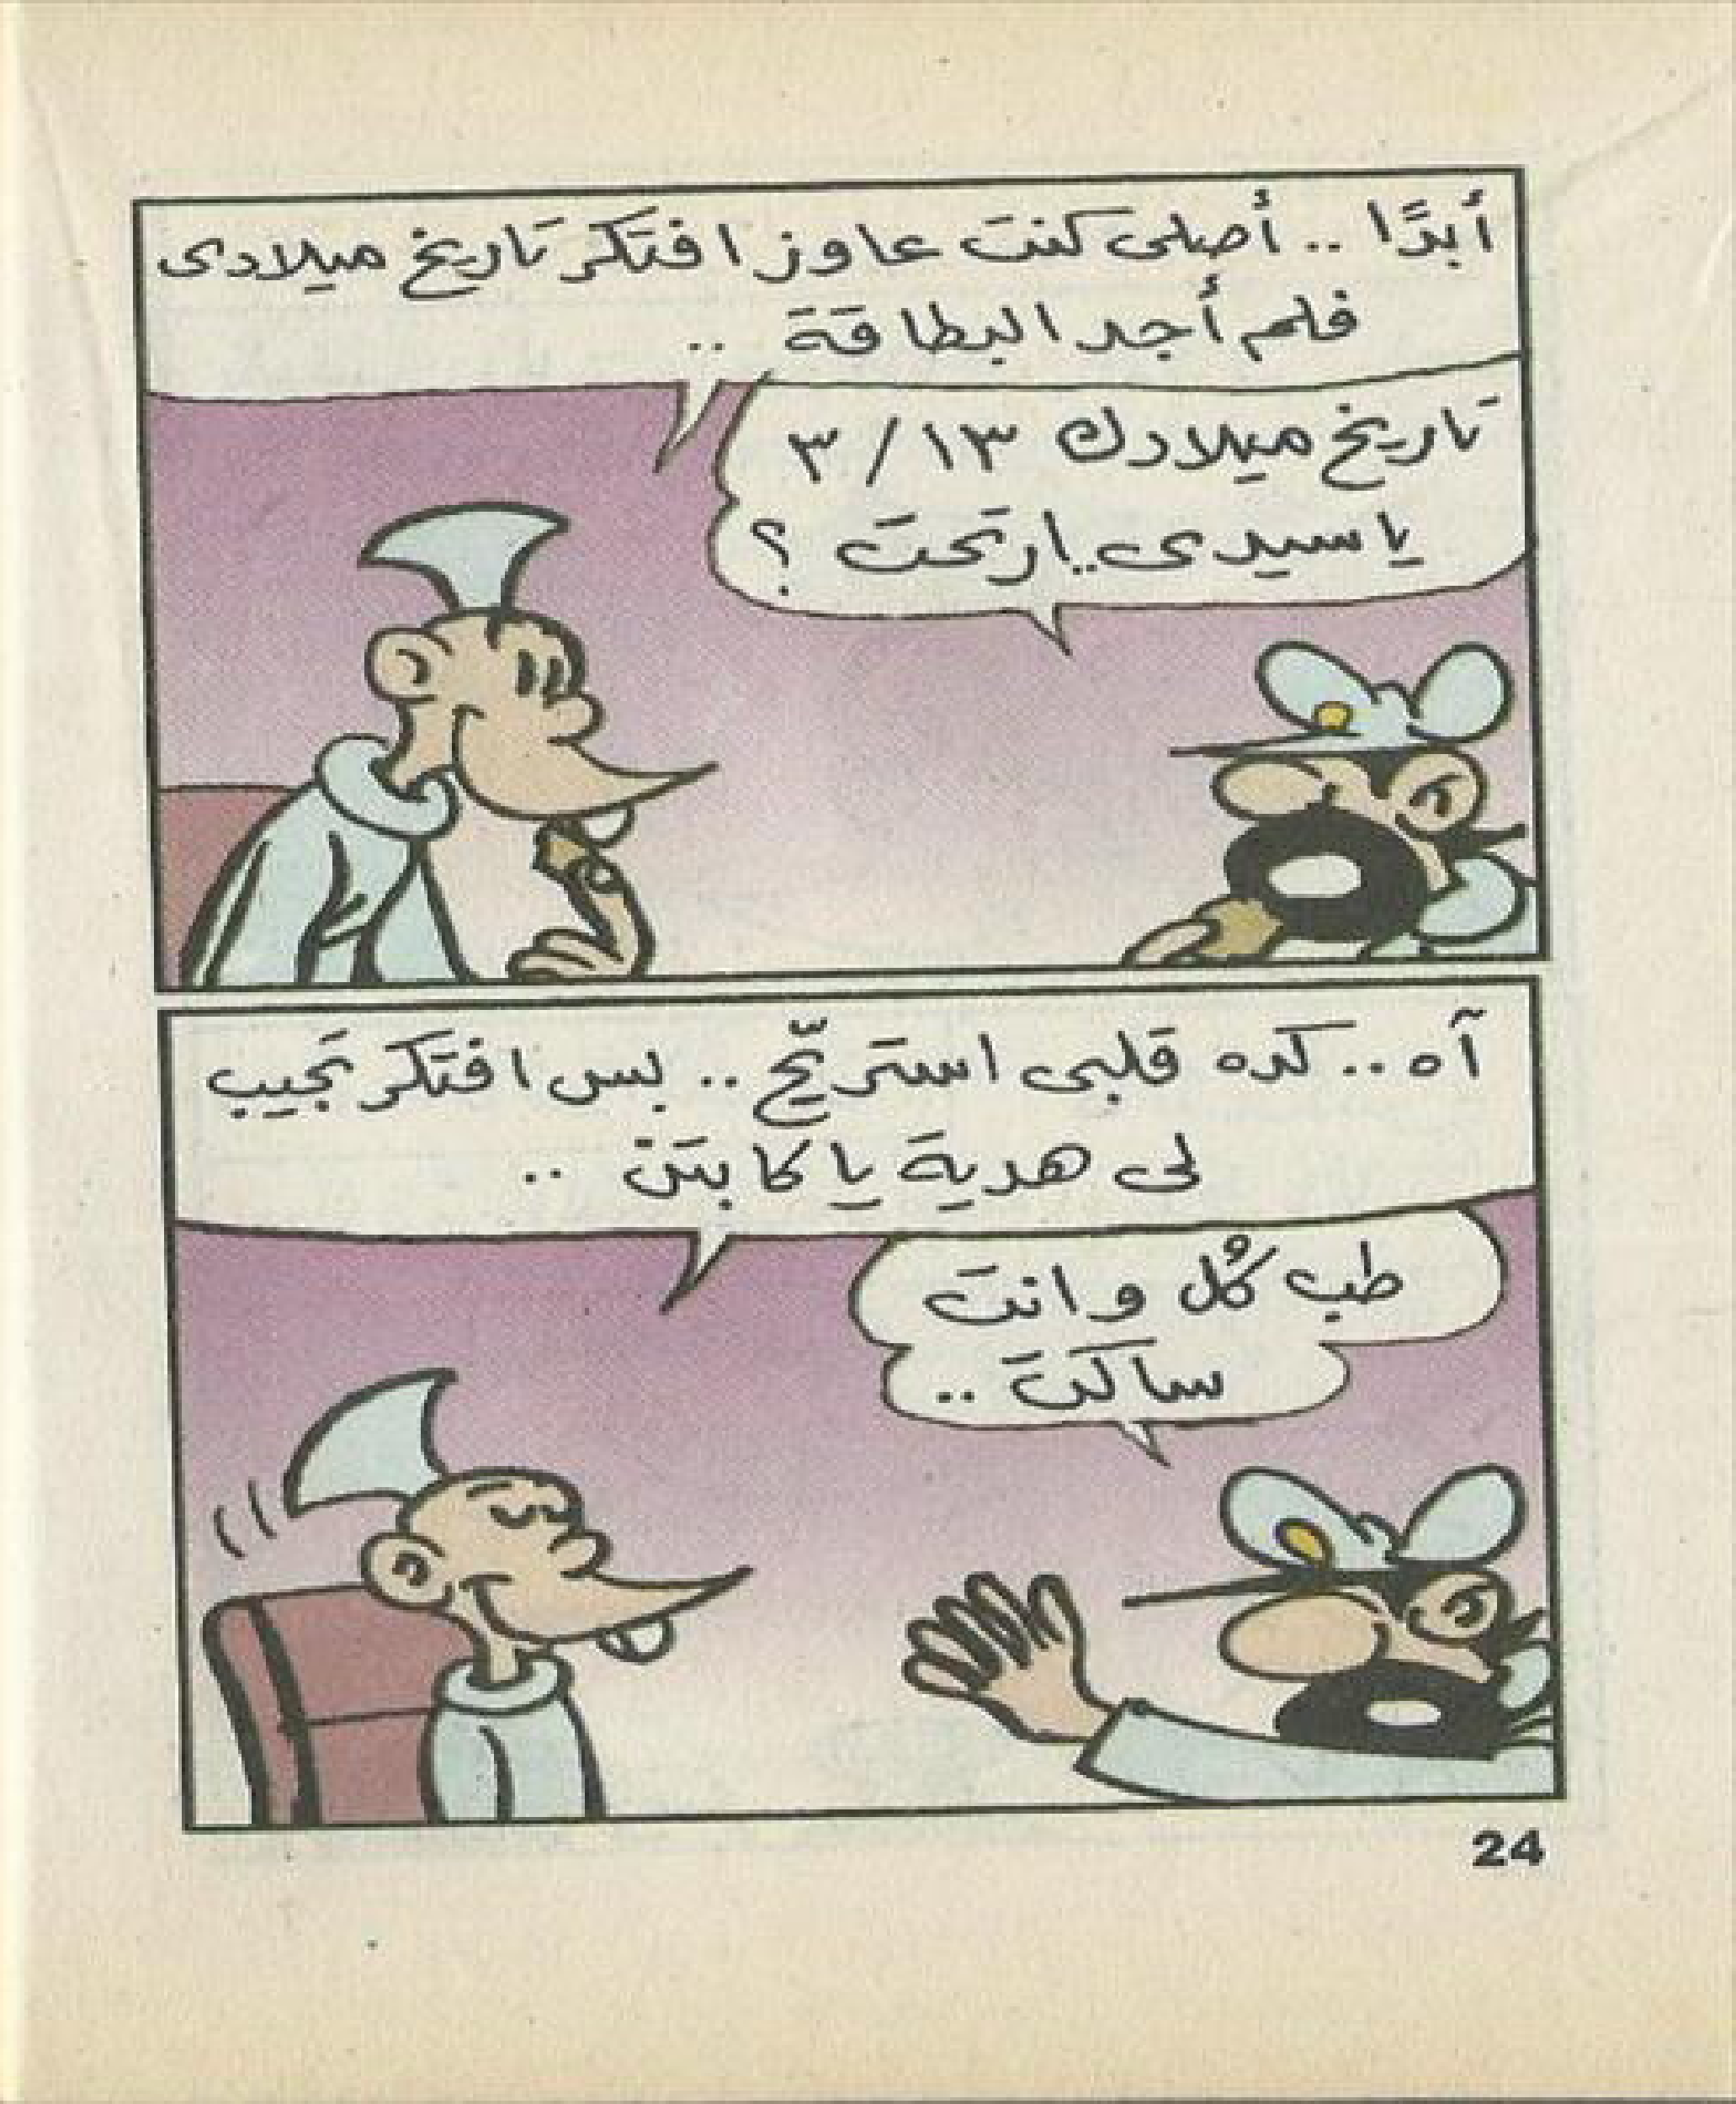 أبدًا .. أصلى كنت عاوز افتكر تاريخ ميلادى
فلم أجد البطاقة ..
تاريخ ميلادك ١٣ / ٣
يا سيدى .. ارتحت ؟
آه .. كده قلبى استريّح .. بس افتكر تجيب
لى هدية يا كابتن ..
طب كُل وانت
ساكت ..
24